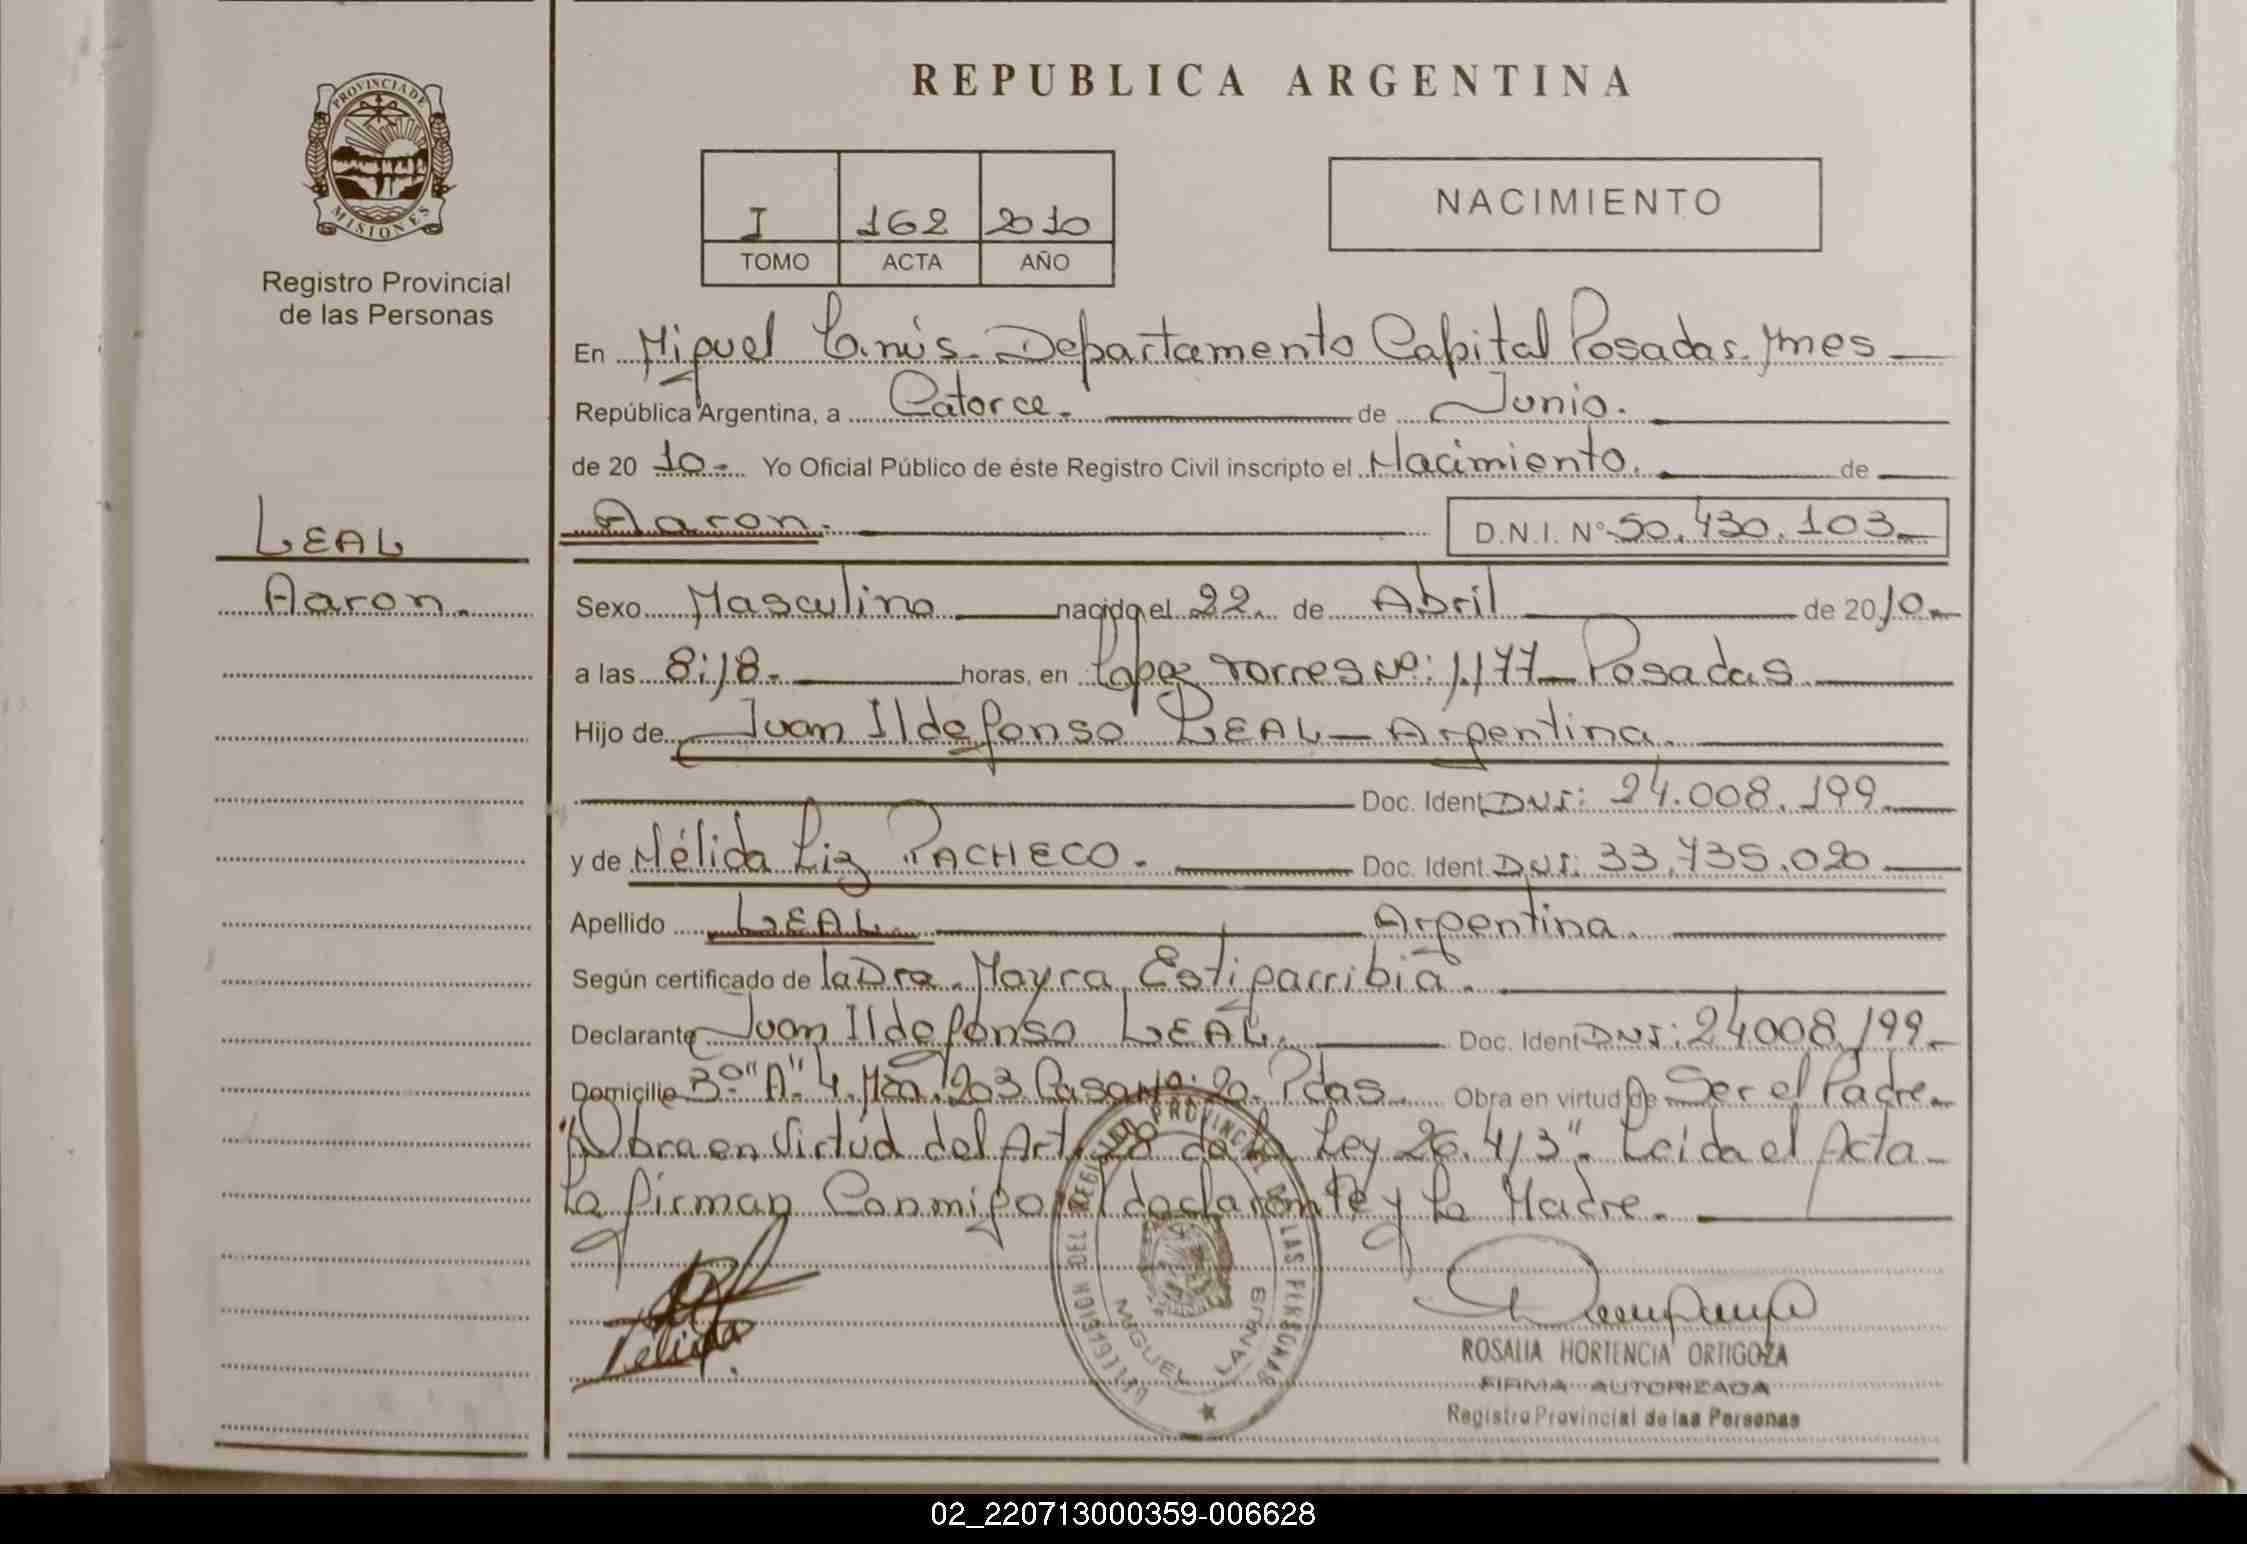 REPUBLICA ARGENTINA
PROVINCIA DE
MISIONES
Registro Provincial
de las Personas
I 162 2010
TOMO ACTA AÑO
NACIMIENTO
En Miguel Lanús. Departamento Capital Posadas. Mnes
República Argentina, a Catorce. de Junio.
de 20 10.- Yo Oficial Público de éste Registro Civil inscripto el Nacimiento. de
LEAL
Aaron.
Aaron. D.N.I. Nº 50.430.103
Sexo Masculino nacido el 22. de Abril de 2010.
a las 8:18. horas, en López Torres Nº: 1.177 Posadas.
Hijo de Juan Ildefonso LEAL - Argentina.
Doc. Ident. DNI: 24.008.199.
y de Nélida Liz PACHECO. Doc. Ident. DNI: 33.735.020
Apellido LEAL. Argentina.
Según certificado de la Dra. Mayra Estigarribia.
Declarante Juan Ildefonso LEAL. Doc. Ident. DNI: 24008.199.
Domicilio 3º "A". 4. Mza. 203 Casa Nº: 20. Pdas. Obra en virtud de Ser el Padre.
"Obra en Virtud del Art. 28 de la Ley 26.413". Leida el Acta
La firman Conmigo el declarante y La Madre.
REGISTRO PROVINCIAL DE LAS PERSONAS
MIGUEL LANUS
ROSALIA HORTENCIA ORTIGOZA
FIRMA AUTORIZADA
Registro Provincial de las Personas
02_220713000359-006628